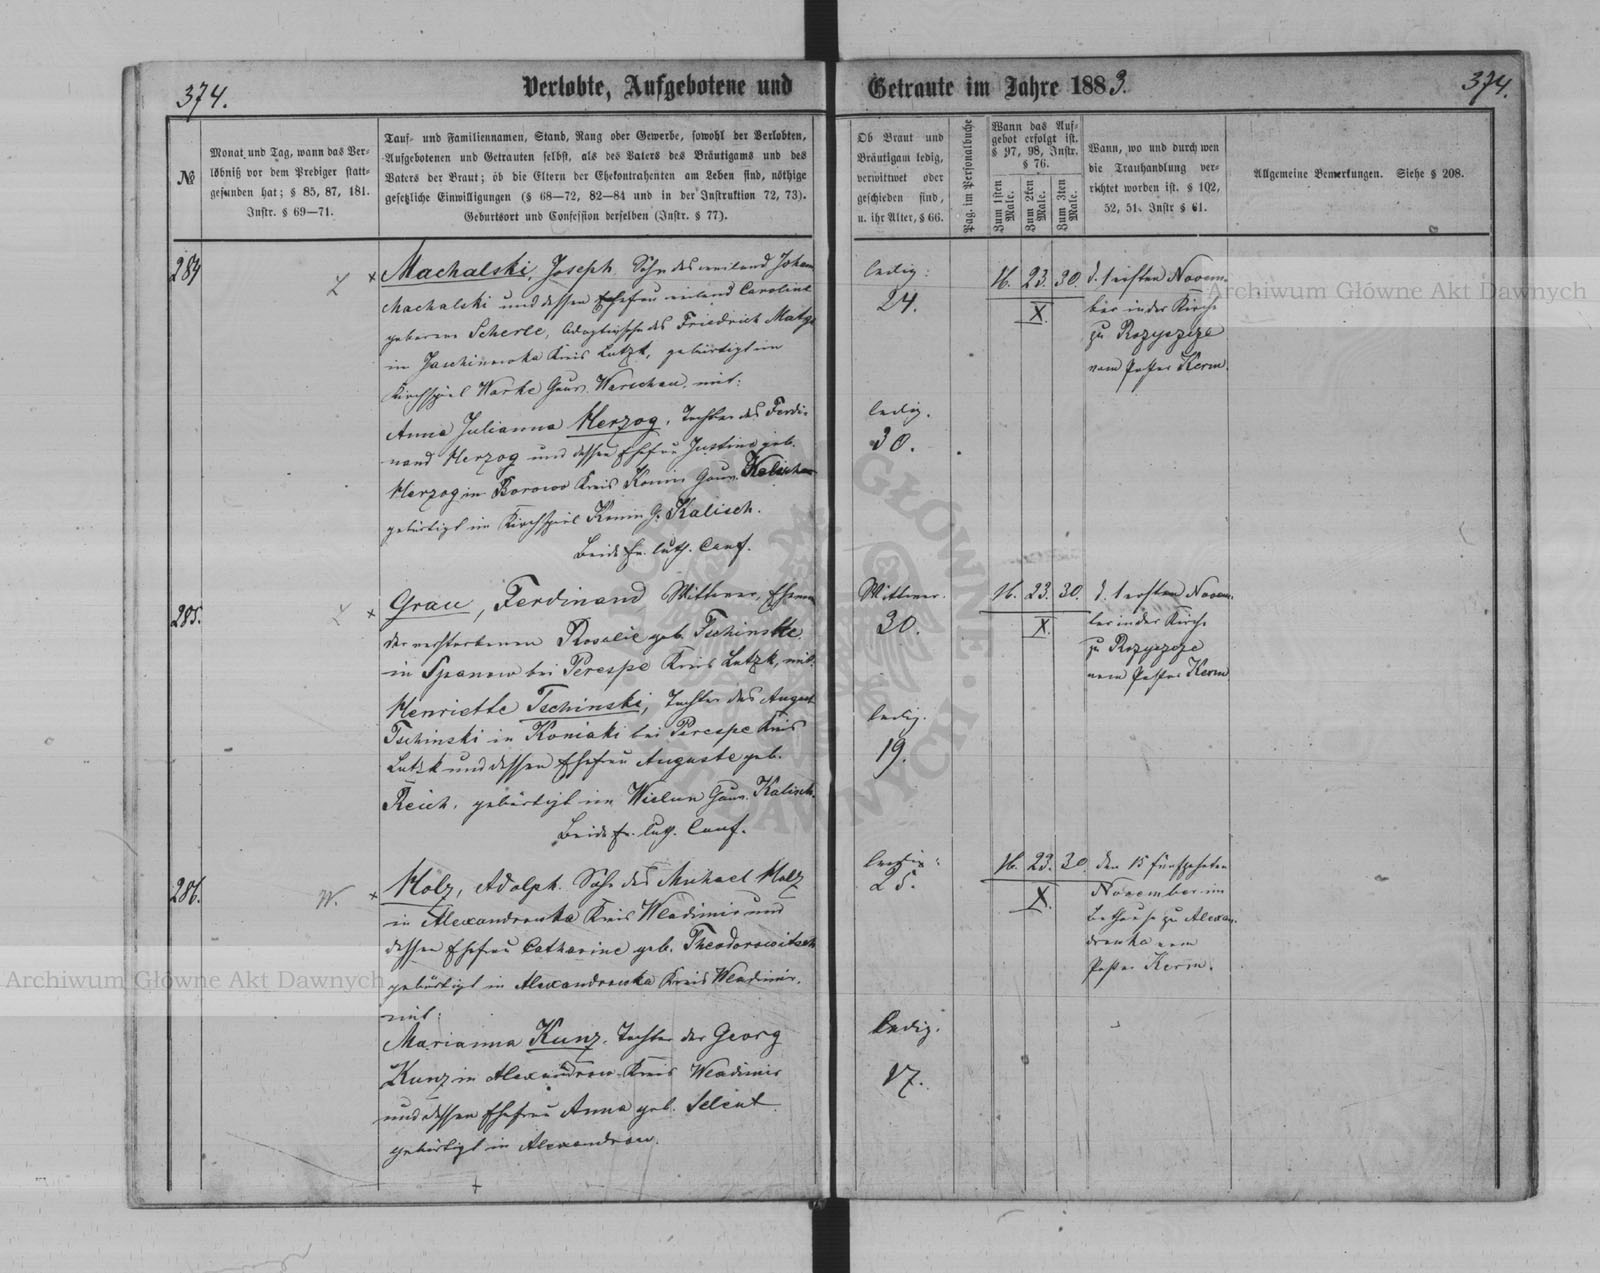 374.
Verlobte, Aufgebotene und
Getraute im Jahre 1883.
374.
№
Monat und Tag, wann das Ver-
löbniß vor dem Prediger statt-
gefunden hat; § 85, 87, 181.
Instr. § 69—71.
Tauf- und Familiennamen, Stand, Rang oder Gewerbe, sowohl der Verlobten,
Aufgebotenen und Getrauten selbst, als des Vaters des Bräutigams und des
Vaters der Braut; ob die Eltern der Ehekontrahenten am Leben sind, nöthige
gesetzliche Einwilligungen (§ 68—72, 82—84 und in der Instruktion 72, 73).
Geburtsort und Confession derselben (Instr. § 77).
Ob Braut und
Bräutigam ledig,
verwittwet oder
geschieden sind,
u. ihr Alter, § 66.
Pag. im Personalbuche
Wann das Auf-
gebot erfolgt ist.
§ 97, 98, Instr.
§ 76.
Zum 1sten Male.
Zum 2ten Male.
Zum 3ten Male.
Wann, wo und durch wen
die Trauhandlung ver-
richtet worden ist. § 102,
52, 51. Instr § 61.
Allgemeine Bemerkungen. Siehe § 208.
284
L ×
Machalski, Joseph. Sohn des weiland Johann
Machalski und dessen Ehefrau weiland Caroline
geborene Scherle, Adoptivsohn des Friedrich Matze
in Jaschinowka Kreis Lutzk, gebürtigt im
Kirchspiel Warke Gouv. Warschau. mit:
Anna Julianna Herzog, Tochter des Ferdi-
nand Herzog und dessen Ehefrau Justine geb.
Herzog in Borowo Kreis Konin Gouv. Kalisch
gebürtigt im Kirchspiel Konin G. Kalisch.
Beide ev. luth. Conf.
ledig:
24.
ledig.
30.
16. 23. 30.
X
d. 1 ersten Novem-
ber in der Kirche
zu Rozyszcze
vom Pastor Kerm.
285.
L ×
Grau, Ferdinand Wittwer,
der verstorbenen Rosalie geb. Tschinski
in Spanow bei Perespe Kreis Lutzk, mit:
Henriette Tschinski, Tochter des August
Tschinski in Koniaki bei Perespe Kreis
Lutzk und dessen Ehefrau Auguste geb.
Reich, gebürtigt im Wielun Gouv. Kalisch.
Beide ev. luth. Conf.
Wittwer.
30.
ledig.
19.
16. 23. 30.
X
d. 1 ersten Novem-
ber in der Kirche
zu Rozyszcze
vom Pastor Kerm
286.
W. ×
Holz, Adolph. Sohn des Michael Holz
in Alexandrowka Kreis Wladimir und
dessen Ehefrau Catharine geb. Theodorowitsch
gebürtigt in Alexandrowka Kreis Wladimir.
mit:
Marianna Kunz. Tochter des Georg
Kunz in Alexandrow Kreis Wladimir
und dessen Ehefrau Anna geb. Selent.
gebürtigt in Alexandrow.
ledig:
25.
ledig.
17.
16. 23. 30.
X
den 15 fünfzehnten
November im
Bethause zu Alexan-
drowka vom
Pastor Kerm.
Archiwum Główne Akt Dawnych
Archiwum Główne Akt Dawnych